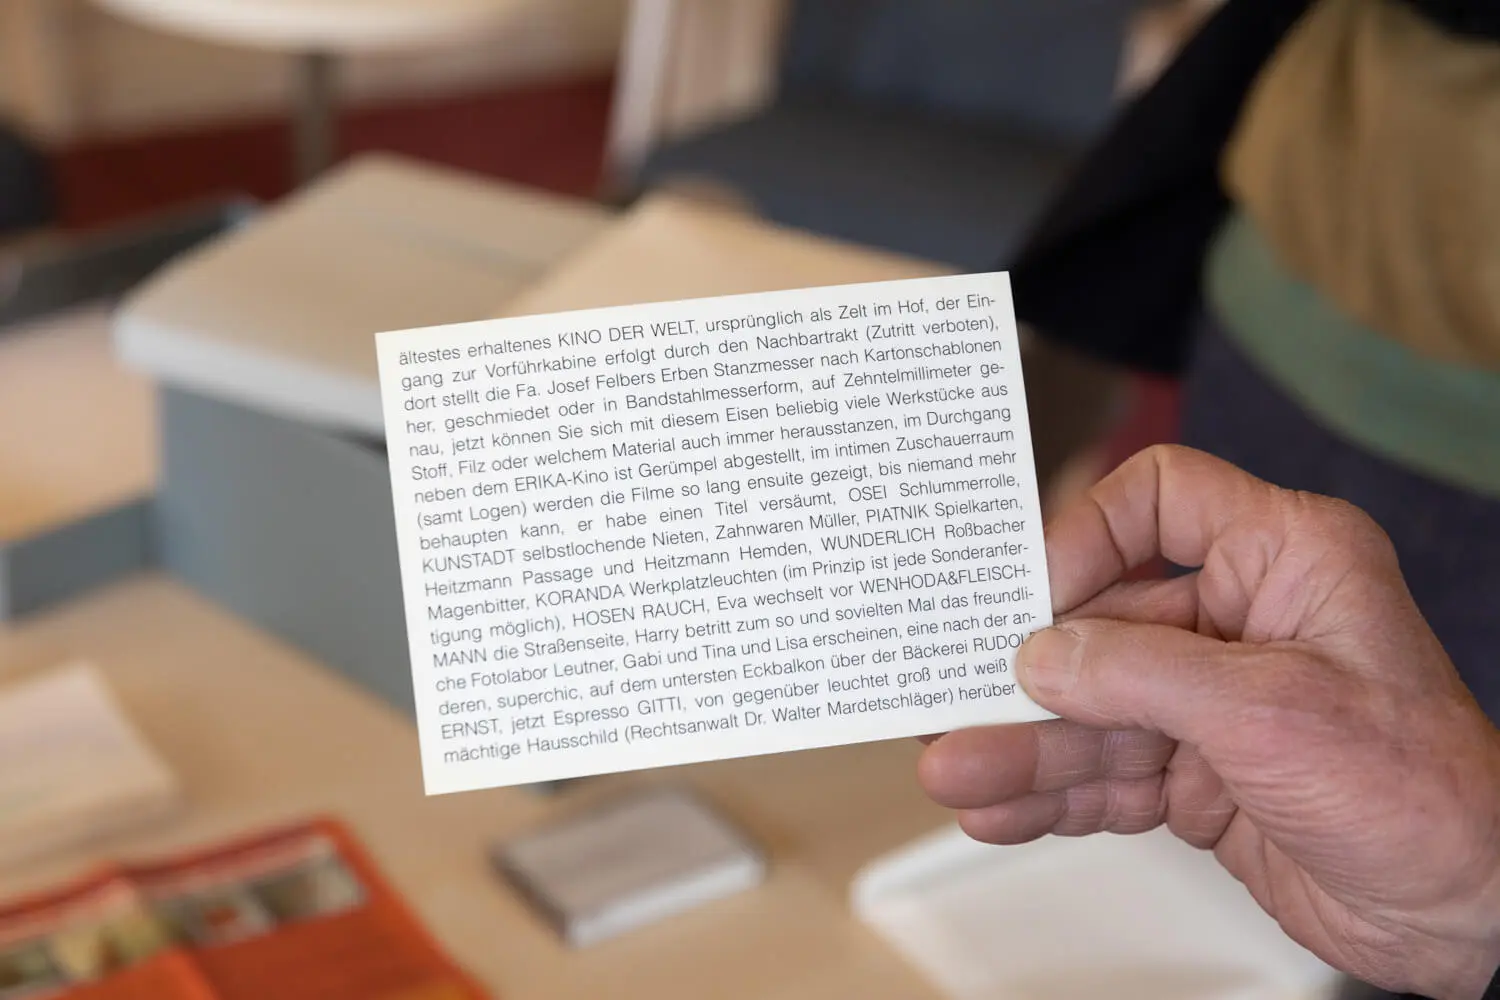 ältestes erhaltenes KINO DER WELT, ursprünglich als Zelt im Hof, der Ein-
gang zur Vorführkabine erfolgt durch den Nachbartrakt (Zutritt verboten),
dort stellt die Fa. Josef Felbers Erben Stanzmesser nach Kartonschablonen
her, geschmiedet oder in Bandstahlmesserform, auf Zehntelmillimeter ge-
nau, jetzt können Sie sich mit diesem Eisen beliebig viele Werkstücke aus
Stoff, Filz oder welchem Material auch immer herausstanzen, im Durchgang
neben dem ERIKA-Kino ist Gerümpel abgestellt, im intimen Zuschauerraum
(samt Logen) werden die Filme so lang ensuite gezeigt, bis niemand mehr
behaupten kann, er habe einen Titel versäumt, OSEI Schlummerrolle,
KUNSTADT selbstlochende Nieten, Zahnwaren Müller, PIATNIK Spielkarten,
Heitzmann Passage und Heitzmann Hemden, WUNDERLICH Roßbacher
Magenbitter, KORANDA Werkplatzleuchten (im Prinzip ist jede Sonderanfer-
tigung möglich), HOSEN RAUCH, Eva wechselt vor WENHODA&FLEISCH-
MANN die Straßenseite, Harry betritt zum so und sovielten Mal das freundli-
che Fotolabor Leutner, Gabi und Tina und Lisa erscheinen, eine nach der an-
deren, superchic, auf dem untersten Eckbalkon über der Bäckerei RUDOLF
ERNST, jetzt Espresso GITTI, von gegenüber leuchtet groß und weiß
mächtige Hausschild (Rechtsanwalt Dr. Walter Mardetschläger) herüber